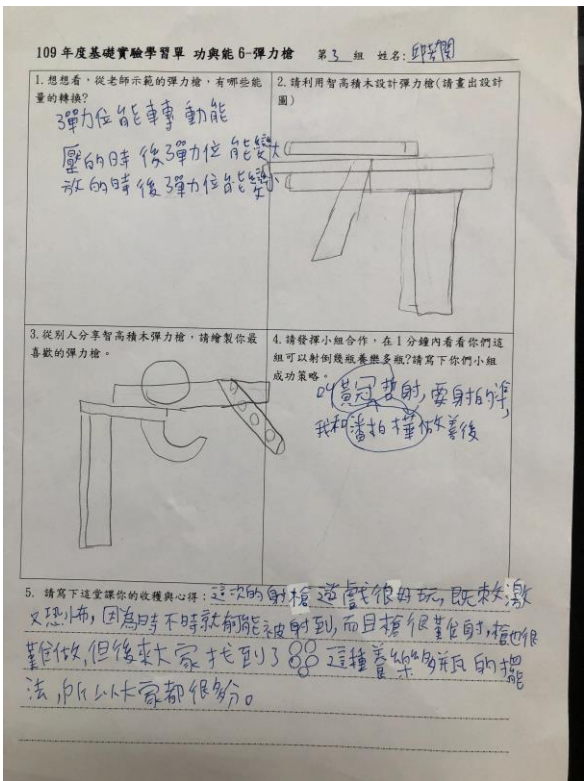 109 年度基礎實驗學習單 功與能 6-彈力槍 第 3 組 姓名:
1.想想看,從老師示範的彈力槍,有哪些能
量的轉換?
彈力位能轉動能
壓的時後彈力位能變大
放的時後彈力位能變小
2.請利用智高積木設計彈力槍(請畫出設計
圖)
3.從別人分享智高積木彈力槍,請繪製你最
喜歡的彈力槍。
4.請發揮小組合作,在 1 分鐘內看看你們這
組可以射倒幾瓶養樂多瓶?請寫下你們小組
成功策略。
叫黃冠哲射,要射的準,
我和潘柏樺做善後
5. 請寫下這堂課你的收穫與心得:這次的射槍遊戲很好玩,既刺激
又恐怖,因為時不時就有可能被射到,而且槍很難射,槍也很
難做,但後來大家找到了 這種養樂多瓶的擺
法,所以大家都很多分。